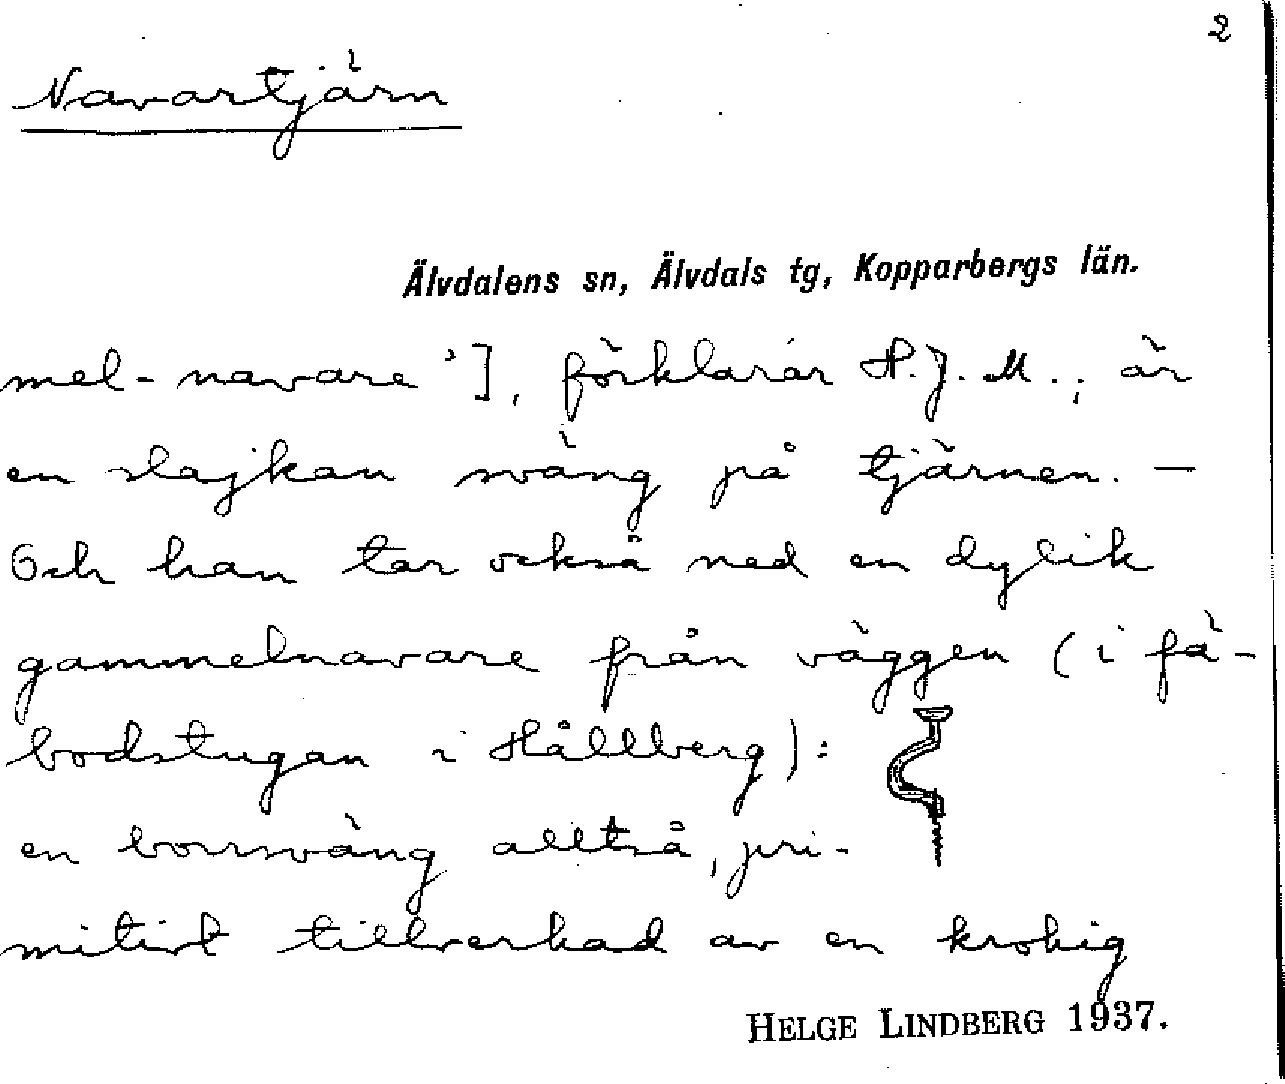 2
Navartjärn
Älvdalens sn, Älvdals tg, Kopparbergs län.
mel-navare'], förklarar H.J.M., är
en slajkan sväng på tjärnen. —
Och han tar också ned en dylik
gammelnavare från väggen (i fä-
bodstugan i Hållberg):
en borrsväng alltså, pri-
mitivt tillverkad av en krokig
HELGE LINDBERG 1937.